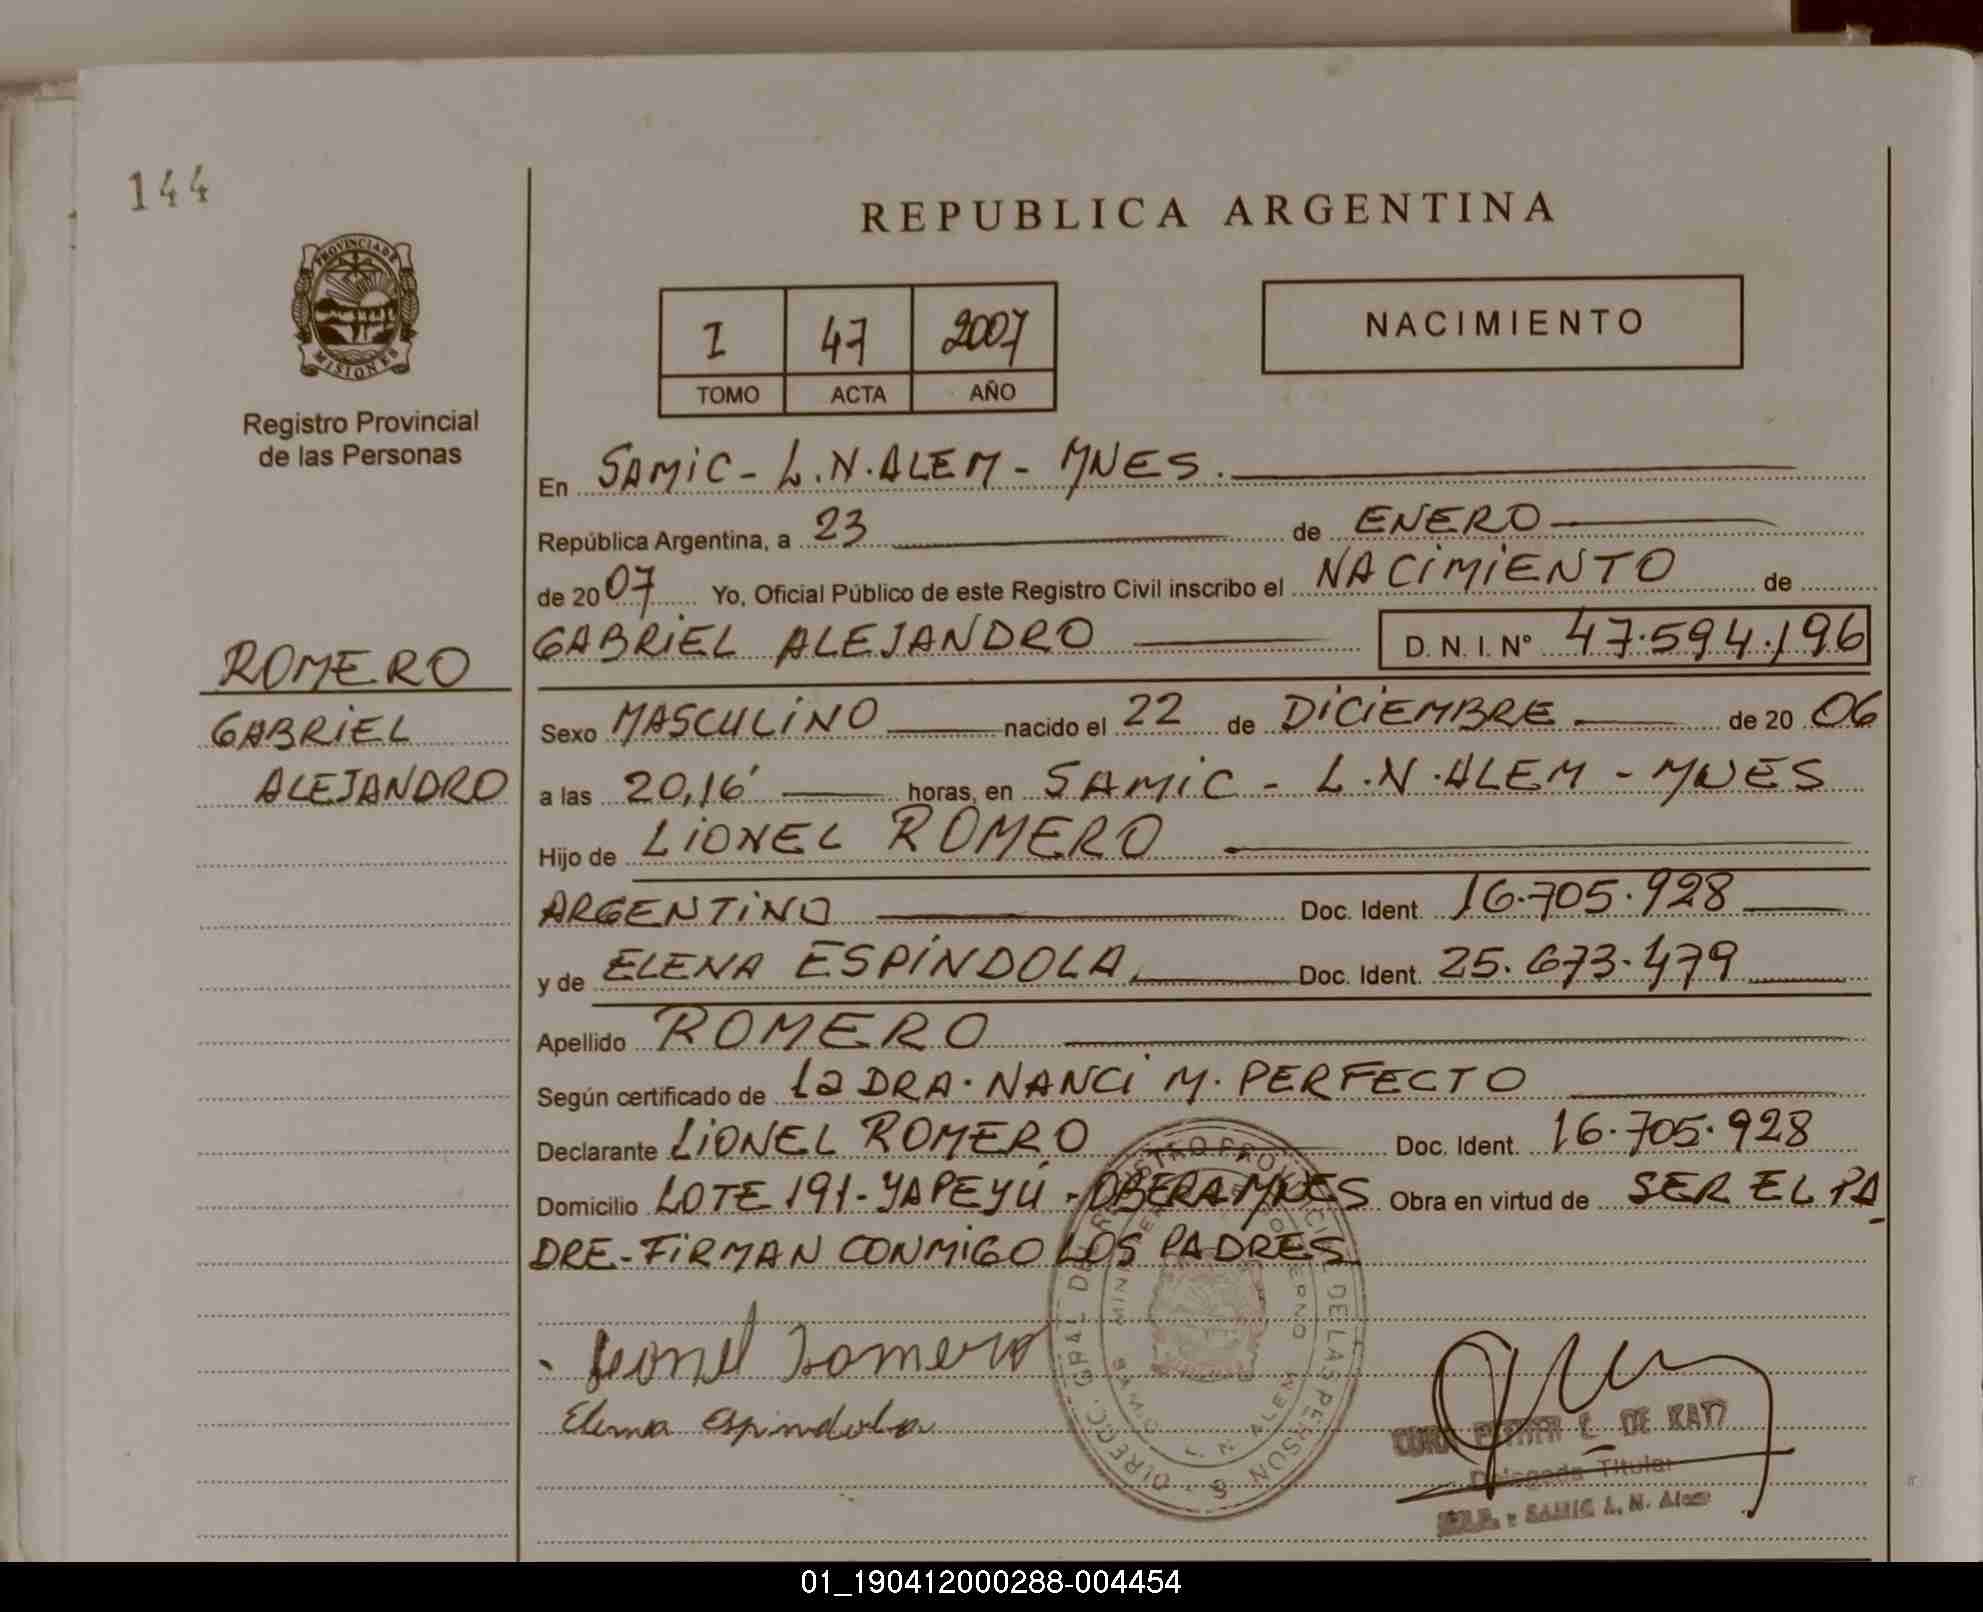 144
REPUBLICA ARGENTINA
PROVINCIA DE
MISIONES
Registro Provincial
de las Personas
I 47 2007
TOMO ACTA AÑO
NACIMIENTO
En SAMIC - L.N. ALEM - MNES.
República Argentina, a 23 de ENERO
de 2007 Yo, Oficial Público de este Registro Civil inscribo el NACIMIENTO de
GABRIEL ALEJANDRO D. N. I. N° 47.594.196
ROMERO
GABRIEL
ALEJANDRO
Sexo MASCULINO nacido el 22 de DICIEMBRE de 2006
a las 20,16' horas, en SAMIC - L.N. ALEM - MNES
Hijo de LIONEL ROMERO
ARGENTINO Doc. Ident. 16.705.928
y de ELENA ESPÍNDOLA. Doc. Ident. 25.673.479
Apellido ROMERO
Según certificado de La DRA. NANCI M. PERFECTO
Declarante LIONEL ROMERO Doc. Ident. 16.705.928
Domicilio LOTE 191 - YAPEYÚ - OBERA MNES Obra en virtud de SER EL PA
DRE - FIRMAN CONMIGO LOS PADRES
Leonel Romero
Elena Espindola
DE KATZ
Delegada Titular
SAMIC L. N. Alem
01_190412000288-004454